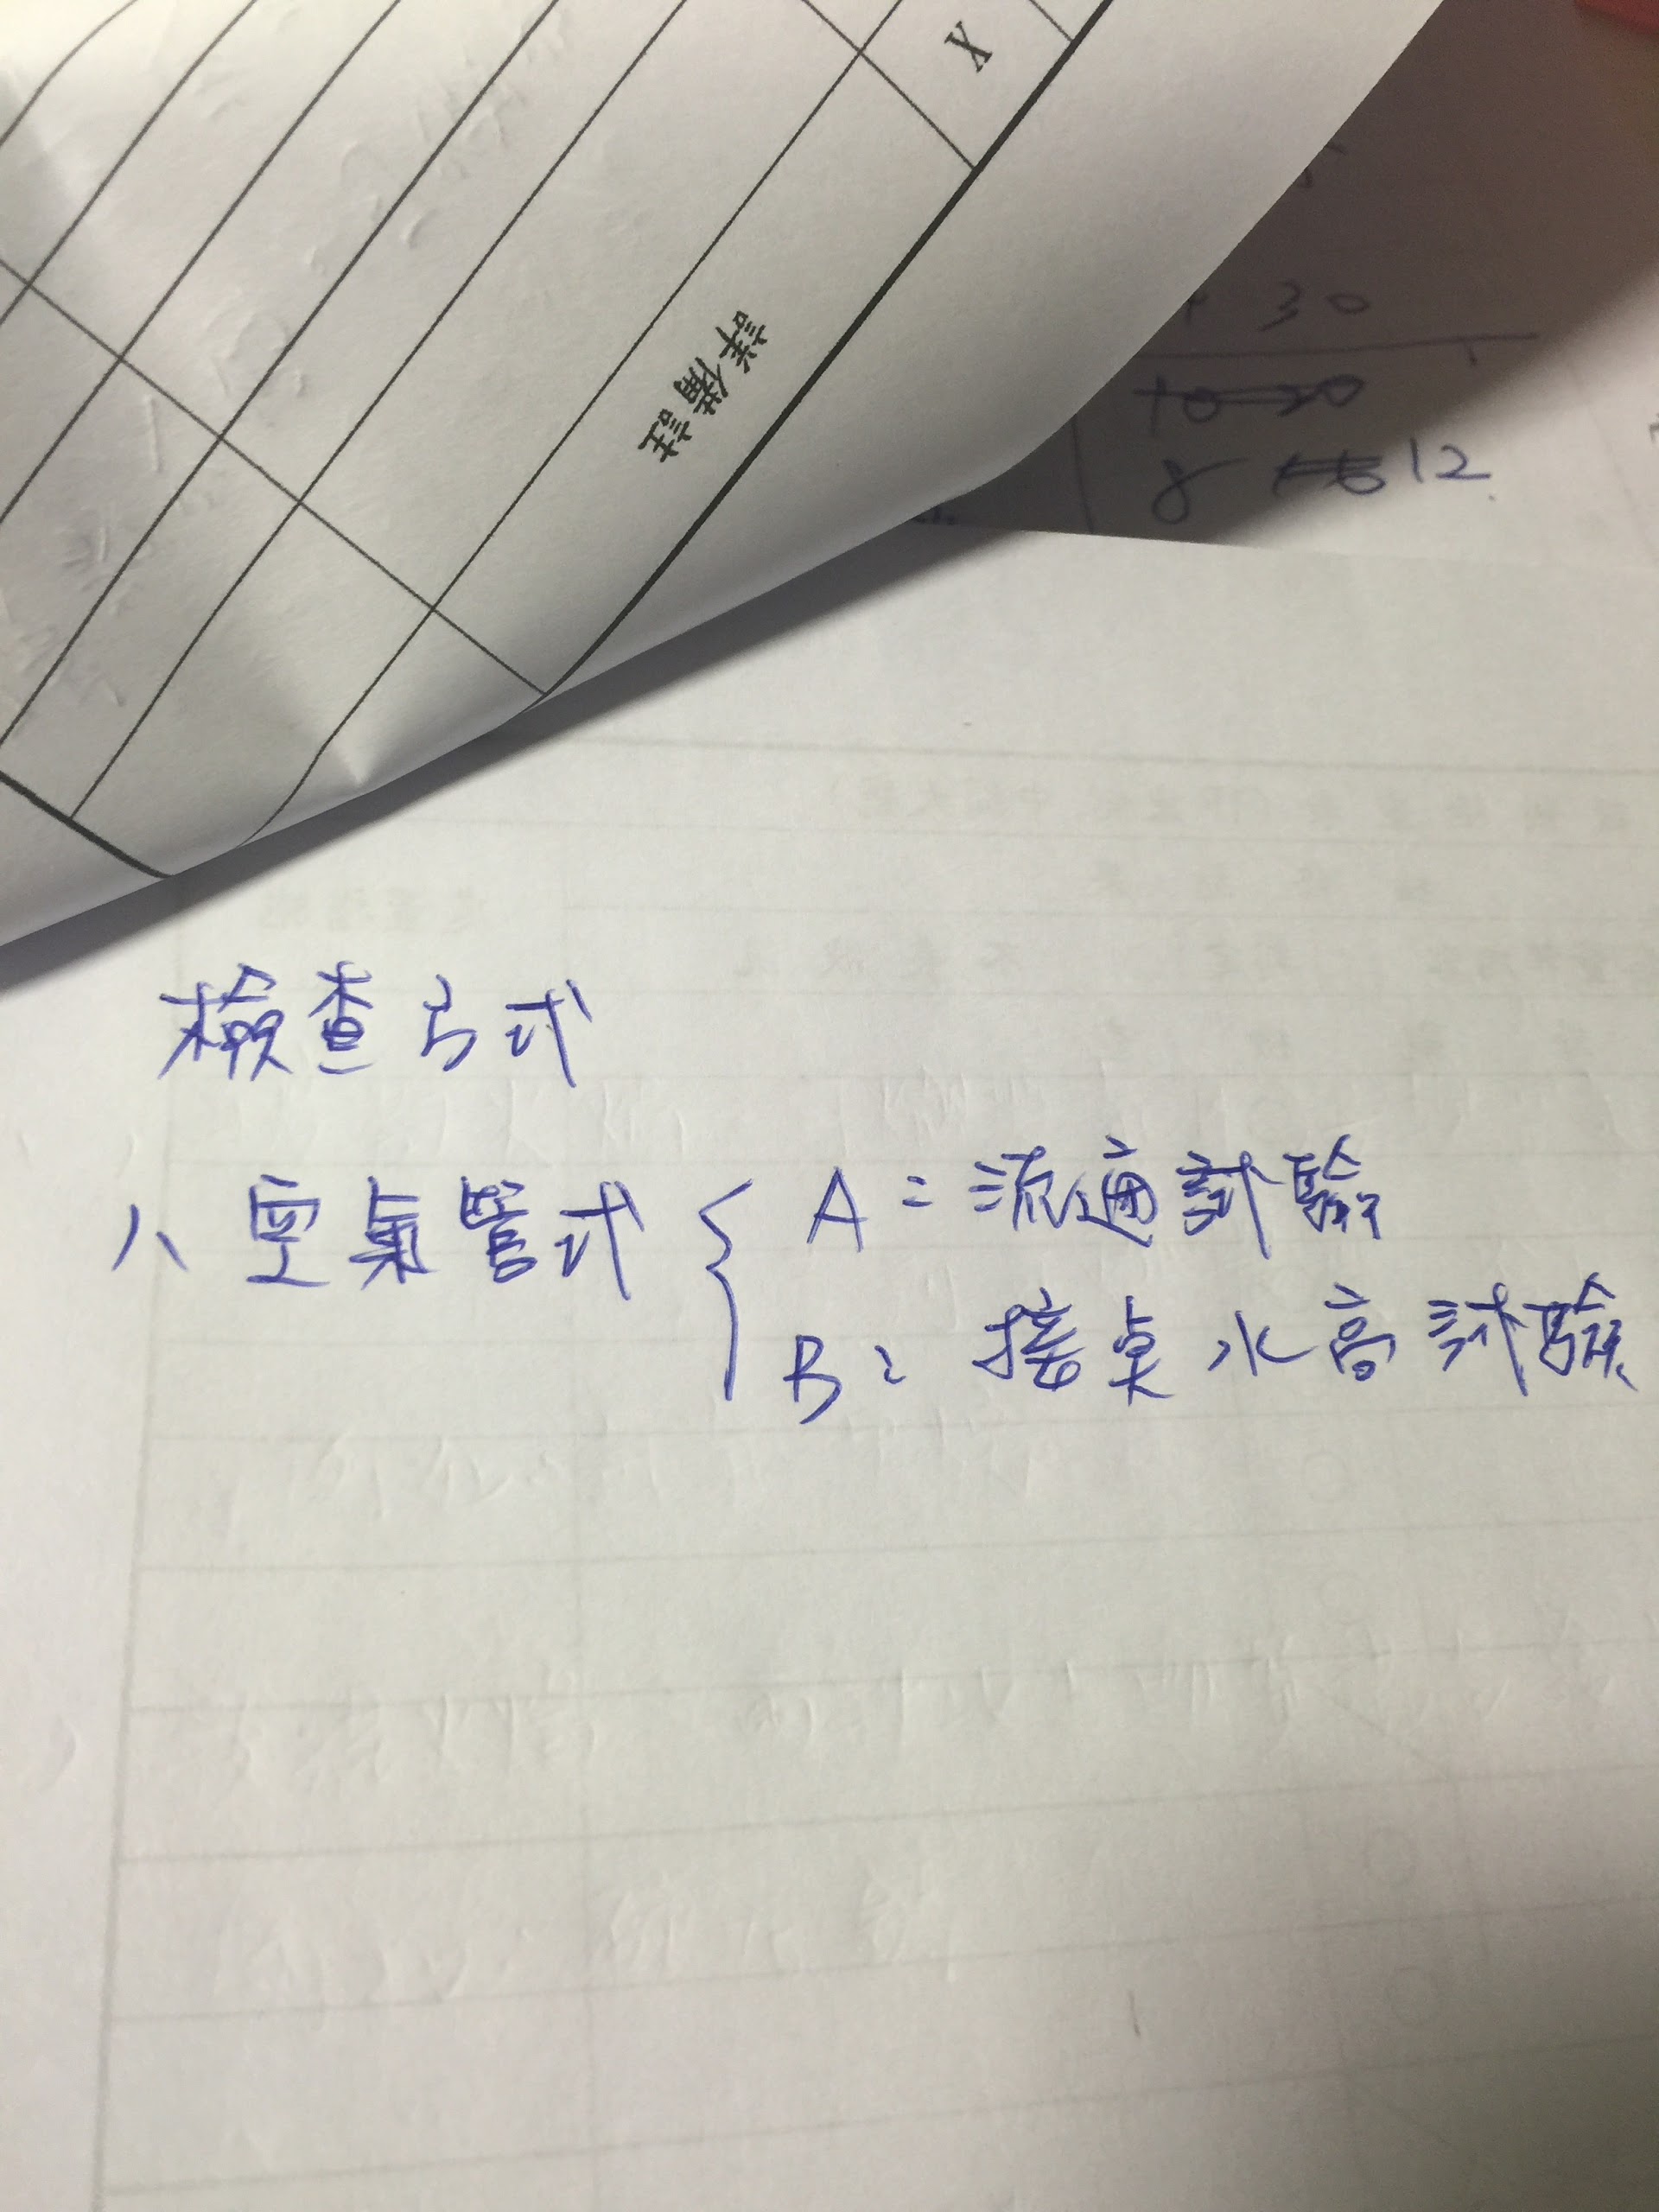 X
詳備註
30
10 20
8 12
檢查方式
1、空氣管式 { A：流通試驗
B：接點水高試驗